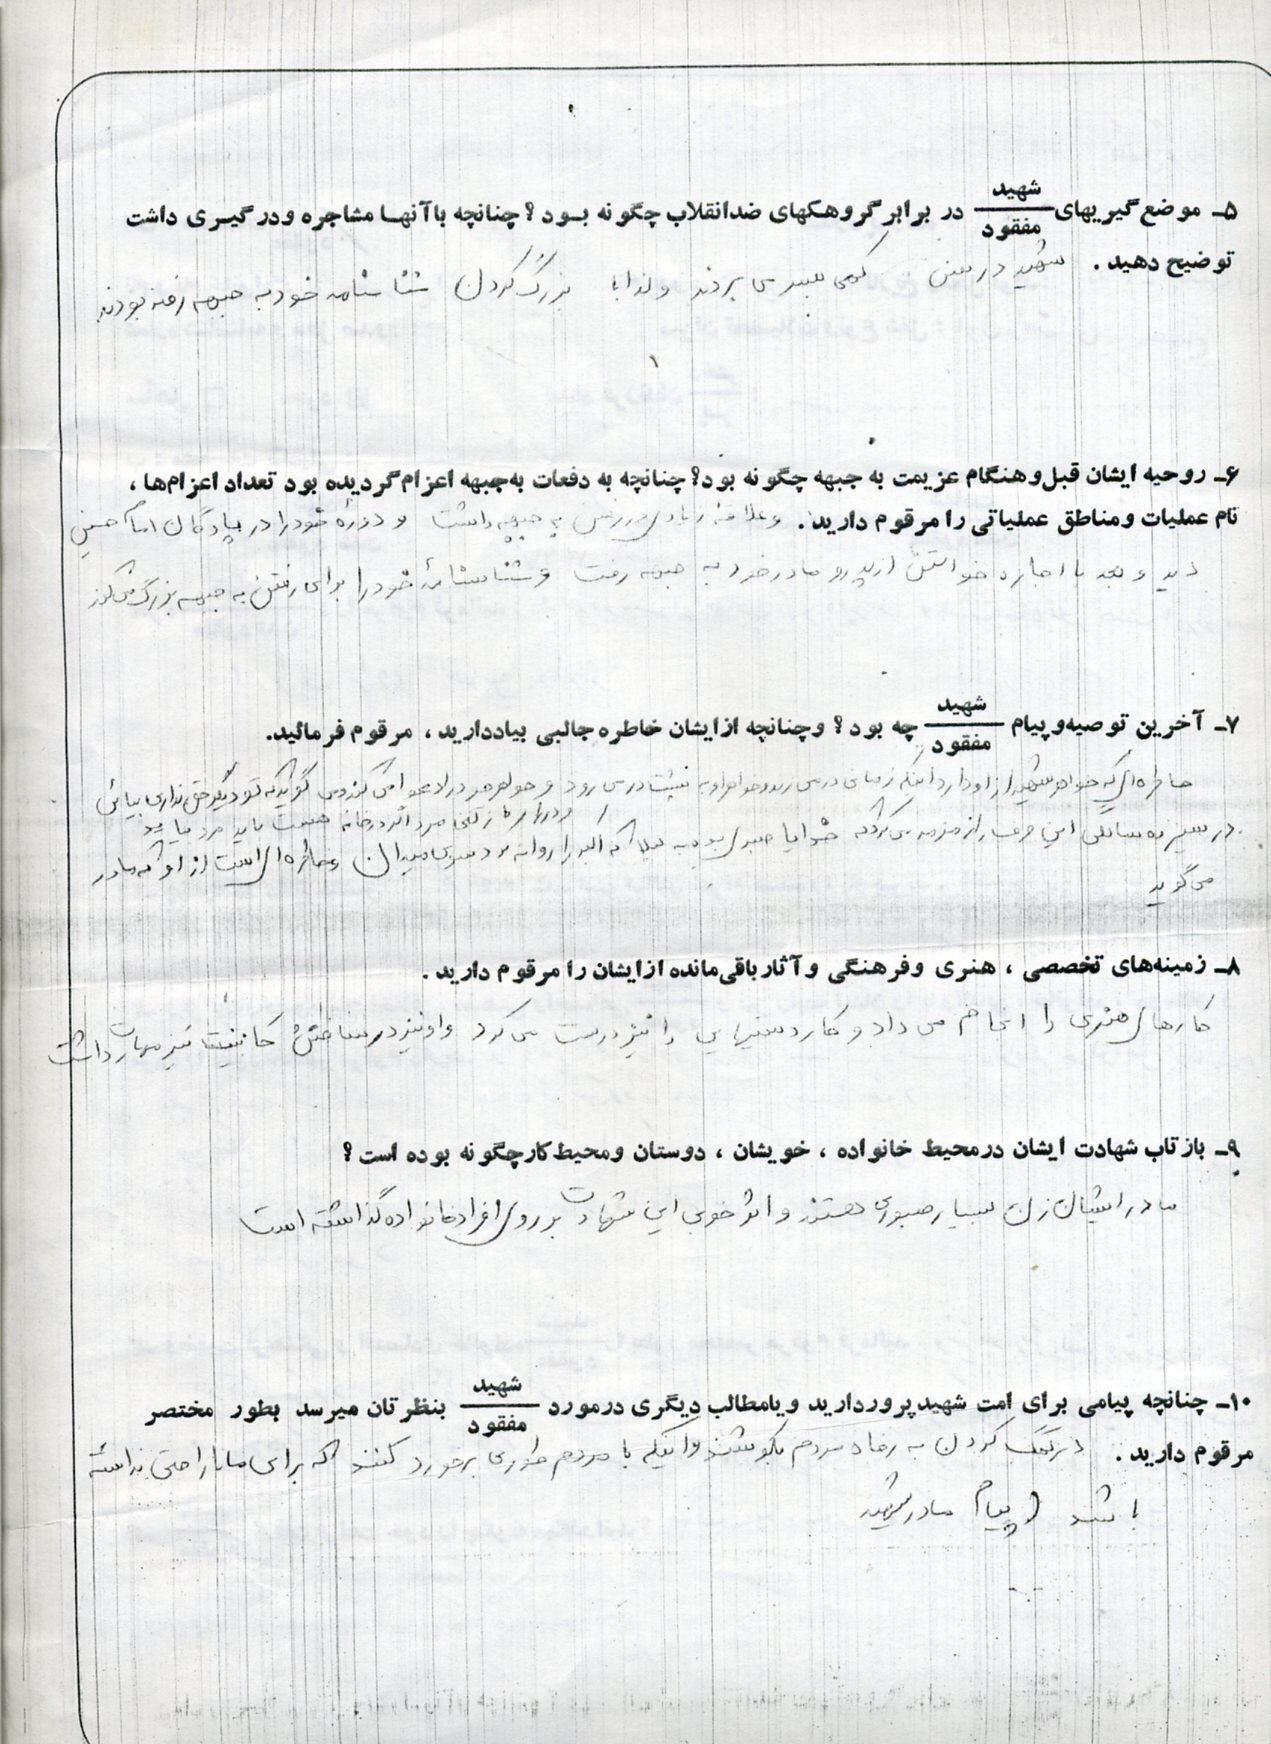 ۵ـ موضع گیریهای شهید / مفقود در برابر گروهکهای ضدانقلاب چگونه بود ؟ چنانچه باآنها مشاجره ودرگیری داشت
توضیح دهید . شهید در سن کمی بسر می بردند ولذا با بزرگ کردن شناسنامه خود به جبهه رفته بودند
۶ـ روحیه ایشان قبل وهنگام عزیمت به جبهه چگونه بود؟ چنانچه به دفعات به جبهه اعزام گردیده بود تعداد اعزام‌ها ،
نام عملیات ومناطق عملیاتی را مرقوم دارید . وعلاقه زیادی به جبهه داشت و دوره خود را در پادگان امام حسین
دید و بعد با اجازه خواستن از پدر و مادر خود به جبهه رفت و شناسنامه خود را برای رفتن به جبهه بزرگ می کند
۷ـ آخرین توصیه وپیام شهید / مفقود چه بود ؟ وچنانچه ازایشان خاطره جالبی بیاددارید ، مرقوم فرمائید.
خاطره ای که خواهر شهید از او دارد اینکه زمانی در می رود و خواهر در را می گوید که تو دیگر حق نداری بیائی
در سیزده سالگی این حرف را زمزمه می کرد که خدایا صبری بده به لیلا که اکبر را روانه کرد سوی میدان خاطره ای است از او که مادر
می گوید
۸ـ زمینه‌های تخصصی ، هنری وفرهنگی وآثارباقی‌مانده ازایشان را مرقوم دارید .
کارهای هنری را انجام می داد و کاردستیهایی را نیز درست می کرد و او نیز در ساختن کابینت نیز مهارت داشت
۹ـ بازتاب شهادت ایشان درمحیط خانواده ، خویشان ، دوستان ومحیط کارچگونه بوده است ؟
مادر ایشان زن بسیار صبوری هستند و اثر خوبی این شهادت بر روی افراد خانواده گذاشته است
۱۰ـ چنانچه پیامی برای امت شهیدپرور دارید ویامطالب دیگری درمورد شهید / مفقود بنظرتان میرسد بطور مختصر
مرقوم دارید . در کمک کردن به رفاه مردم بکوشند و اینکه با مردم طوری برخورد کنند که برای ما ناراحتی نداشته
باشند (پیام مادر شهید